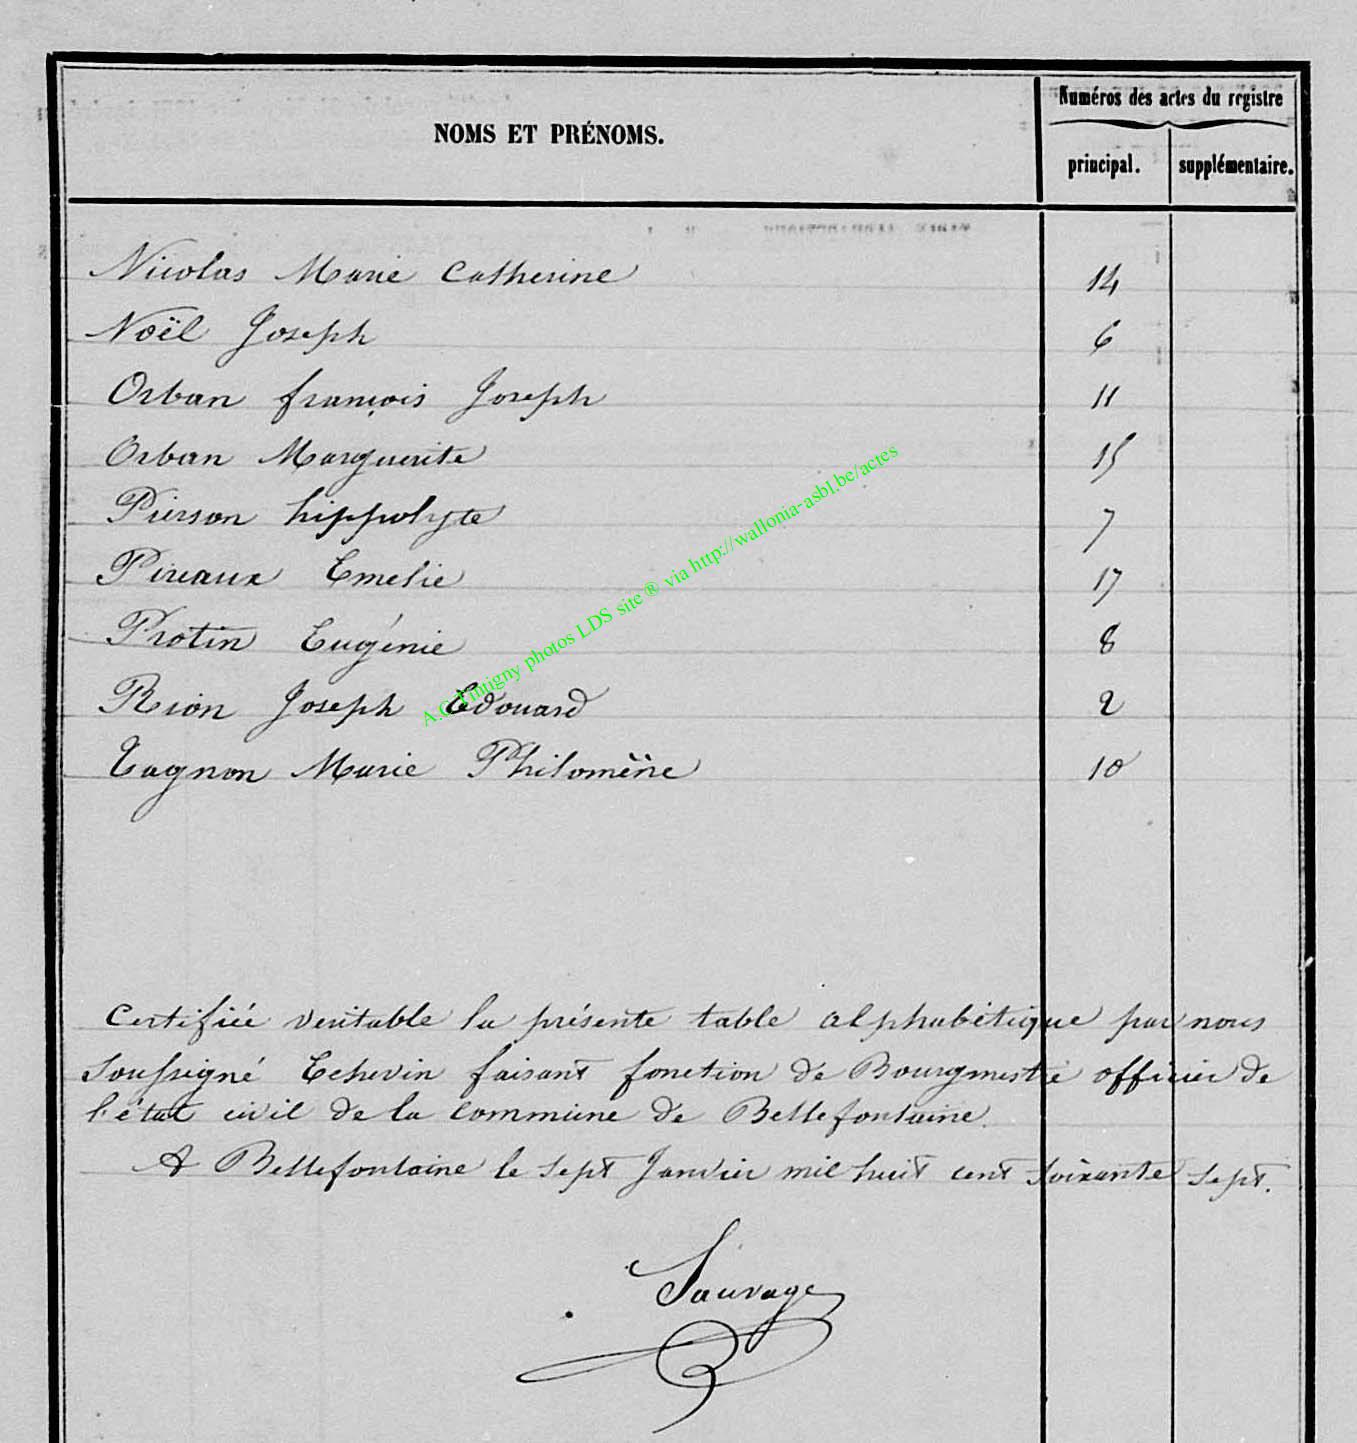 Numéros des actes du registre
NOMS ET PRÉNOMS.
principal. supplémentaire.
Nicolas Marie Catherine 14
Noël Joseph 6
Orban françois Joseph 11
Orban Marguerite 15
Pierson hippolyte 7
Pireaux Emelie 17
Protin Eugénie 8
Rion Joseph Edouard 2
Tagnon Marie Philomène 10
A.C. Tintigny photos LDS site ® via http://wallonia-asbl.be/actes
Certifiée veritable la présente table alphabétique par nous
Soussigné Echevin faisant fonction de Bourgmestre officier de
l'état civil de la commune de Bellefontaine.
A Bellefontaine le sept Janvier mil huit cent soixante sept.
Sauvage